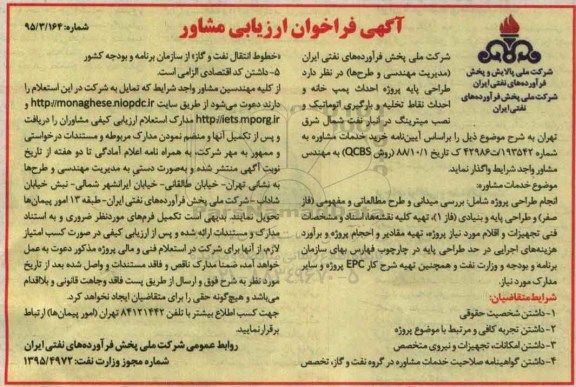 آگهی فراخوان ارزیابی مشاور
شماره: ۹۵/۳/۱۶۴
شرکت ملی پالایش و پخش
فرآورده‌های نفتی ایران
شرکت ملی پخش فرآورده‌های
نفتی ایران
شرکت ملی پخش فرآورده‌های نفتی ایران
(مدیریت مهندسی و طرح‌ها) در نظر دارد
طراحی پایه پروژه احداث پمپ خانه و
احداث نقاط تخلیه و بارگیری اتوماتیک و
نصب میترینگ در انبار نفت شمال شرق
تهران به شرح موضوع ذیل را براساس آیین‌نامه خرید خدمات مشاوره به
شماره ۱۹۳۵۴۲/ت۴۲۹۸۶ ک تاریخ ۸۸/۱۰/۱ (روش QCBS) به مهندس
مشاور واجد شرایط واگذار نماید.
موضوع خدمات مشاوره:
انجام طراحی پروژه شامل: بررسی میدانی و طرح مطالعاتی و مفهومی (فاز
صفر) و طراحی پایه و بنیادی (فاز ۱)، تهیه کلیه نقشه‌ها، اسناد و مشخصات
فنی تجهیزات و اقلام مورد نیاز پروژه، تهیه مقادیر و احجام پروژه و برآورد
هزینه‌های اجرایی در حد طراحی پایه در چارچوب فهارس بهای سازمان
برنامه و بودجه و وزارت نفت و همچنین تهیه شرح کار EPC پروژه و سایر
مدارک مورد نیاز.
شرایط متقاضیان:
۱- داشتن شخصیت حقوقی
۲- داشتن تجربه کافی و مرتبط با موضوع پروژه
۳- داشتن امکانات، تجهیزات و نیروی متخصص
۴- داشتن گواهینامه صلاحیت خدمات مشاوره در گروه نفت و گاز، تخصص
«خطوط انتقال نفت و گاز» از سازمان برنامه و بودجه کشور
۵- داشتن کد اقتصادی الزامی است.
از کلیه مهندسین مشاور واجد شرایط که تمایل به شرکت در این استعلام را
دارند دعوت می‌شود از طریق سایت http://monaghese.niopdc.ir و
http://iets.mporg.ir مدارک استعلام ارزیابی کیفی مشاوران را دریافت
و پس از تکمیل آنها و منضم نمودن مدارک مربوطه و مستندات درخواستی
و ممهور به مهر شرکت، به همراه نامه اعلام آمادگی تا دو هفته از تاریخ
نوبت آگهی منتشر شده و به‌صورت دستی به مدیریت مهندسی و طرح‌ها
به نشانی تهران- خیابان طالقانی- خیابان ایرانشهر شمالی- نبش خیابان
شاداب- شرکت ملی پخش فرآورده‌های نفتی ایران- طبقه ۱۳ امور پیمان‌ها
تحویل نمایند. بدیهی است تکمیل فرم‌های موردنظر ضروری و به استناد
مدارک و مستندات ارائه شده و پس از ارزیابی کیفی در صورت کسب امتیاز
لازم از آنها برای شرکت در استعلام فنی و مالی پروژه مذکور دعوت به عمل
خواهد آمد، ضمنا مدارک ناقص و فاقد مستندات و واصل شده بعد از تاریخ
مورد نظر به شرح فوق و ارسال از طریق پست فاقد وجاهت قانونی و بلااقدام
می‌باشد و هیچ‌گونه حقی را برای متقاضیان ایجاد نخواهد کرد.
جهت کسب اطلاع بیشتر با تلفن ۸۴۱۲۱۴۴۲ تهران (امور پیمان‌ها) ارتباط
برقرار نمایید.
روابط عمومی شرکت ملی پخش فرآورده‌های نفتی ایران
شماره مجوز وزارت نفت: ۱۳۹۵/۴۹۷۲